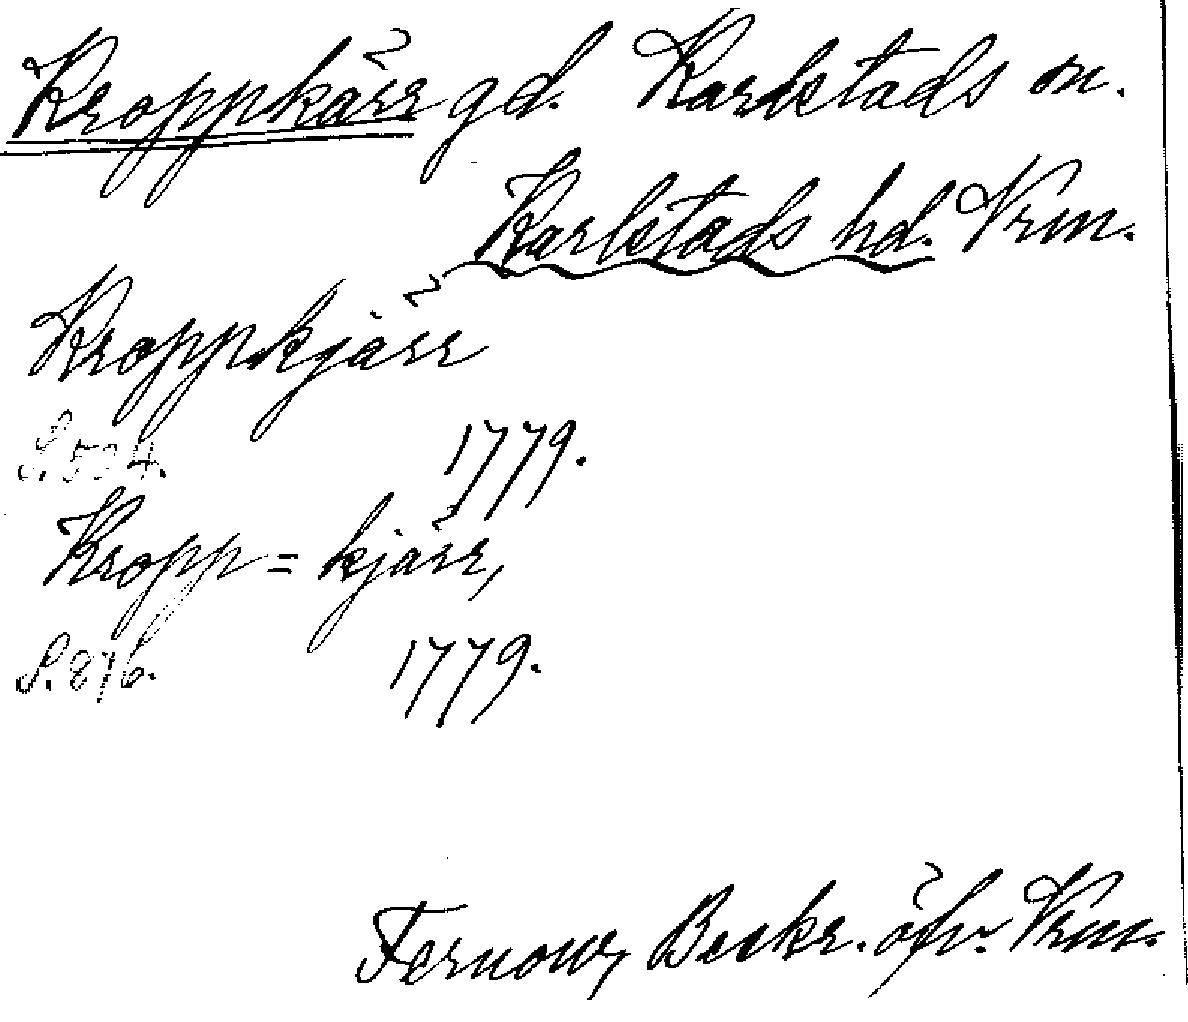 Kroppkärr gd. Karlstads sn.
Karlstads hd. Vrm.
Kroppkjärr
S. 534. 1779.
Kropp= kjärr,
S. 876. 1779.
Fernow, Beskr. öfv. Vrm.